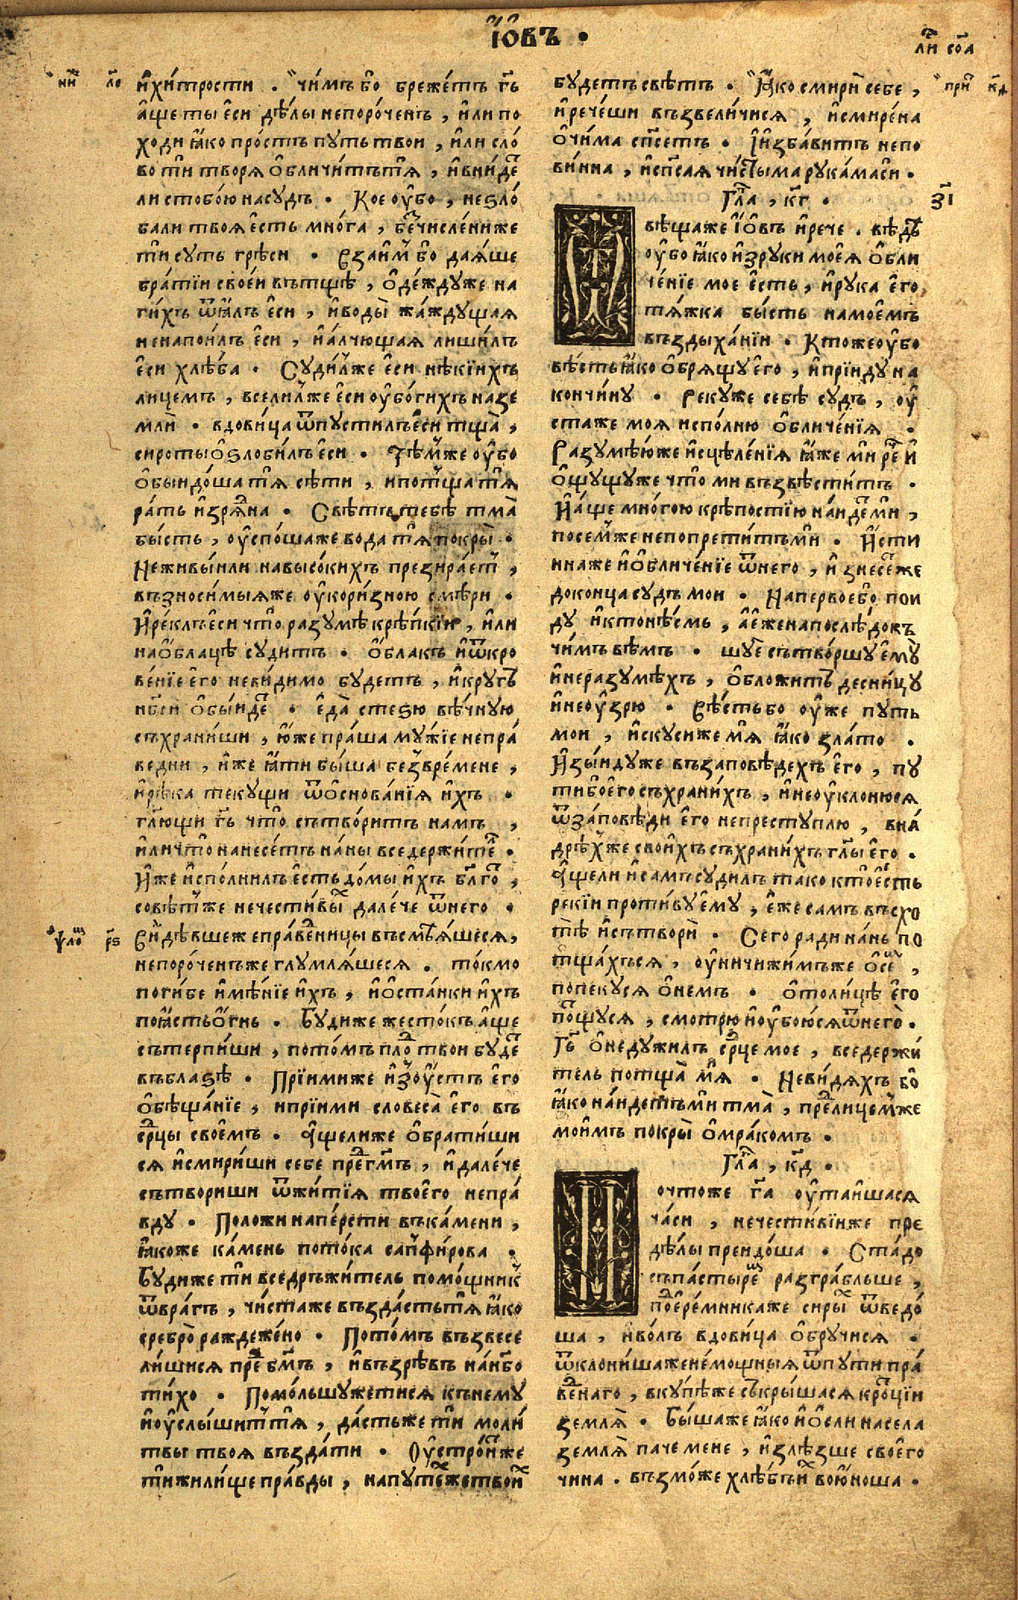 І҆ѡ҆въ ·
ли҃ сѻ҃а
и҆хи́трости . чи́мъ бо бреже́тъ гь҃
а҆ще ты е҆си дѣлы непоро́ченъ , и҆ли по
ходи ꙗ҆ко про́стъ путь твои , и҆ли сло́
во ти творѧ о҆бличи́тътѧ , и҆ вни́де
ли стобою насудъ . Кое оу҆бо , неѕло́
бали твоѧ е҆сть мно́га , бе́счисле́ниже
ти суть грѣси . Взаи́м бо даѧ́ше
бра́тїи своеи вътще , о҆де́ждуже на
ги́хъ ѿꙗлъ е҆си , и҆воды̀ жа́ждущаѧ
ненапои́лъ е҆си , и҆а́лчющаѧ лиши́лъ
е҆си хлѣба . Суди́лже е҆си нѣкїихъ
лицемъ , всели́лже е҆си оу҆бо́гихъ назе
млѝ . вдови́ца ѿпусти́лъ е҆си тща̀ ,
сироты о҆ѕло́билъ е҆си . Тѣ́мже оу҆бо
о҆быидо́ша тѧ̀ сѣти , и҆потща тѧ̀
ра́ть и҆зрѧ́дна . Свѣтъ тебѣ̀ тма̀
бысть , оу҆спо́шаже вода тѧ̀ покры̀ .
Неживы́и ли навысо́кихъ презира́етъ ,
възноси́мыѧже оу҆кори́зною смѣри .
И҆ре́клъ е҆си что̀ разумѣ крѣ́пкїи , и҆ли
нао́блацѣ су́дитъ . о҆́блакъ и҆ѿкро
ве́нїе е҆го неви́димо будетъ , и҆кругъ
нб҃си о҆бы́иде . е҆да̀ стеѕю вѣ́чную
съхрани́ши , ю҆же пра́ша му́жїе непра́
ведни , и҆же ꙗ҆ти бы́ша безвре́мене ,
и҆рѣка теку́щи ѿоснова́нїѧ и҆хъ .
гл҃ющи гь҃ что̀ сътвори́тъ намъ ,
и҆ли что̀ нанесе́тъ на́ны вседержи́те .
И҆же и҆спо́лнилъ е҆сть до́мы и҆хъ бл҃го ,
совѣ́тже нечести́вы дале́че ѿнего .
Ви́дѣвшеже є҆пра́ведницы възсмѣѧ́шесѧ ,
непоро́ченъже глумлѧ́шесѧ . то́кмо
поги́бе и҆мѣ́нїе и҆хъ , и҆о҆ста́нки и҆хъ
поꙗ́сть о҆́гнь . Бу́диже жесто́къ а҆ще
сътерпи́ши , пото́мъ пло твои буде
въблаѕѣ . Прїими́же и҆зоу́стъ е҆го
о҆бѣща́нїе , и҆прїими словеса̀ е҆го въ
ср҃цы своемъ . А҆щелиже о҆брати́ши
сѧ и҆смири́ши себе пре́гмъ , и҆дале́че
сътвориши ѿжитїѧ твоего непра́
вду . Положи напе́рсти въка́мени ,
ꙗ҆коже ка́мень пото́ка сапфи́рова .
Бу́диже ти вседръжи́тель помо́щник
ѿвра́гъ , чи́стаже възда́сть тѧ ꙗ҆ко
сребро̀ раждеже́но . Пото́мъ възвесе
ли́шисѧ пре бг҃мъ , и҆възрѣвъ на́нбо
ти́хо . Помо́льшужетисѧ къ нему
и҆оу҆слы́шит тѧ , да́стьже ти моли́
твы твоѧ възда́ти . Оу҆стро́итже
ти жили́ще пра́вды , напуте́жетвои
будетъ свѣтъ . Ꙗ҆ко смири себе ,
и҆рече́ши възвели́чисѧ , и҆смире́на
о҆чи́ма спсетъ . И҆избавитъ непо
ви́нна , и҆спсаѧ чи́стыма рука́ма си .
Гла̀ , кг҃ .
ѿвѣщаже І҆ѡ҆въ и҆рече . вѣдѣ
оу҆бо ꙗ҆ко и҆зруки моеѧ̀ о҆бли
че́нїе мое е҆сть , и҆рука е҆го ,
тѧ́жка бысть намоемъ
въздыха́нїи . Ктоже оу҆бо
вѣсть ꙗ҆ко о҆брѧщу е҆го , и҆прїиду на
кончи́ну . Рекуже себѣ̀ судъ , оу҆
стаже моѧ испо́лню о҆бличе́нїѧ .
Разумѣюже и҆сцѣле́нїѧ ꙗ҆же ми рече и҆
о҆щущуже что ми възвѣсти́тъ .
И҆а҆ще мно́гою крѣпостїю на́идеми ,
посемже непопрети́тъ ми . И҆сти
ннаже и҆о҆бличе́нїе ѿнего , и҆знесеже
доконца судъ мои . Напервоебо пои
ду и҆ктонѣсмь , а҆ еженапослѣдокъ
чимъ вѣмъ . шуе сътво́ршу е҆му
и҆неразумѣхъ , о҆бложитъ десни́цу
и҆неоу҆зрю . Вѣсть бо оу҆же путь
мои , и҆скусиже мѧ̀ ꙗ҆ко зла́то .
И҆зы́идуже възаповѣ́дехъ е҆го , пу
ти бо е҆го съхрани́хъ , и҆неоу҆клоню́сѧ
ѿза́повѣди е҆го непреступлю , вна́
дрѣхже свои́хъ съхрани́хъ глы е҆го .
А҆щели и҆самъ судилъ тако кто е҆́сть
рекїи проти́ву е҆му , е҆же самъ въсхо
тѣ и҆сътвори̂ . Сего ради на́нь по
тща́хъсѧ , оу҆ничижи́мъже о҆се ,
попеку́сѧ о҆немъ . о҆толи́цѣ е҆го
потщу́сѧ , смотрю и҆оу҆бою́сѧ ѿнего̀ .
Гь҃ о҆недужилъ ср҃це мое , вседержи́
тель потща̀ мѧ̀ . Неви́дѧхъ бо
ꙗ҆ко на́идетъ ми тма̀ , пре́лицемже
моимъ покры̀ о҆мра́комъ .
Гла̀ , кд҃ .
Почтоже га оу҆таи́шасѧ
ча́си , нечести́вїиже пре
дѣлы преидо́ша . Ста́до
съпа́стыре разгра́бльше ,
поереми́каже сиры ѿведо́
ша , и҆во́лъ вдови́ца о҆бручи́сѧ .
ѿклони́шаже не́мощныѧ ѿпути пра́
веднаго , вкупѣже съкры́шасѧ кро́цїи
землѧ̀ . Бы́шаже ꙗ҆ко и҆о҆сли насела
землѧ̀ паче мене , и҆злѣзше своего
чина . възмо́же хлѣбъ и҆ вою́ноша .